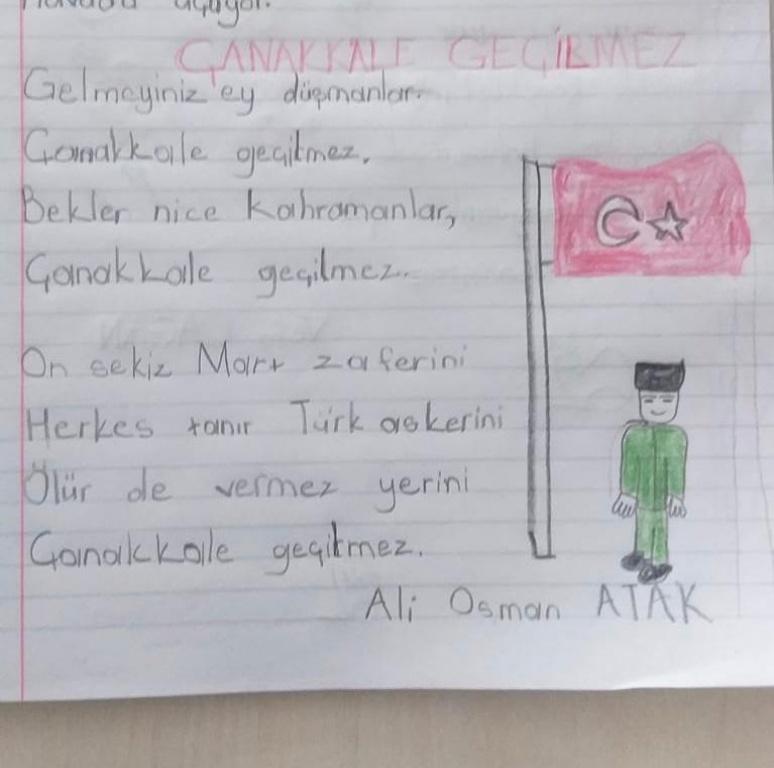 ÇANAKKALE GEÇİLMEZ
Gelmeyiniz ey düşmanlar.
Çanakkale geçilmez.
Bekler nice kahramanlar,
Çanakkale geçilmez.
On sekiz Mart zaferini
Herkes tanır Türk askerini
Ölür de vermez yerini
Çanakkale geçilmez.
Ali Osman ATAK